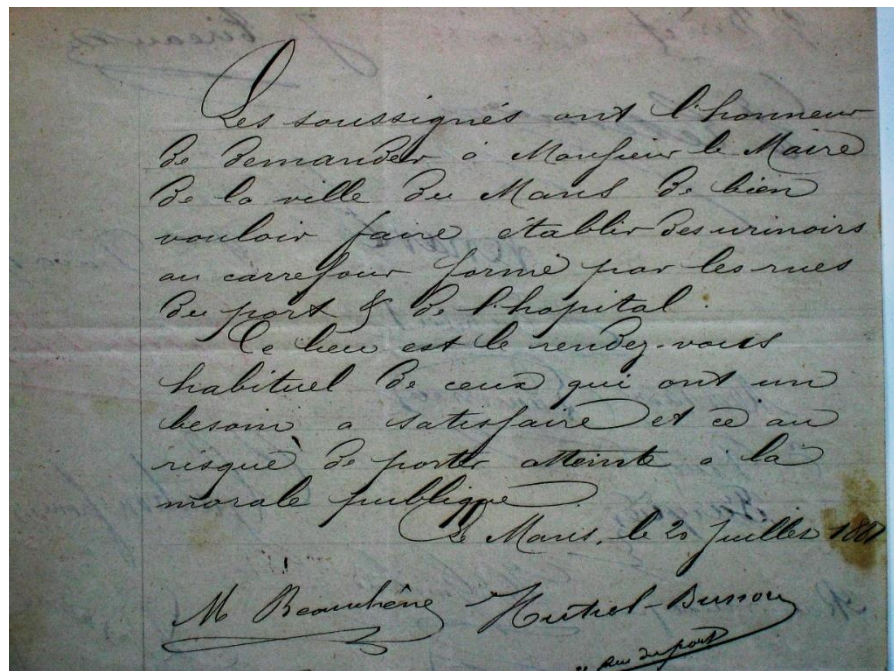 Les soussignés ont l'honneur
de demander à Monsieur le Maire
de la ville du Mans de bien
vouloir faire établir des urinoirs
au carrefour formé par les rues
du port & de l'hopital.
Ce lieu est le rendez-vous
habituel de ceux qui ont un
besoin a satisfaire et ce au
risque de porter atteinte à la
morale publique
Le Mans, le 20 Juillet
M Beauchêne Hutiel-Busson
rue du port